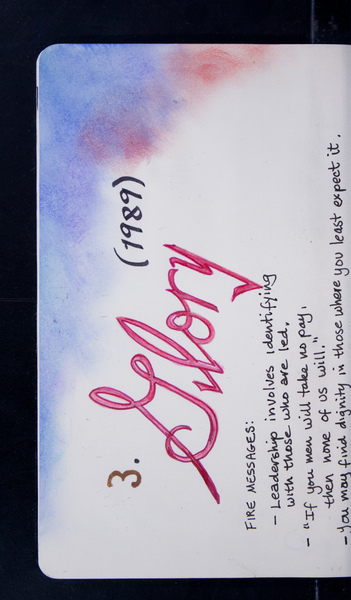 3. Glory (1989)
FIRE MESSAGES:
- Leadership involves identifying
with those who are led.
- "If you men will take no pay,
then none of us will."
- You may find dignity in those where you least expect it.